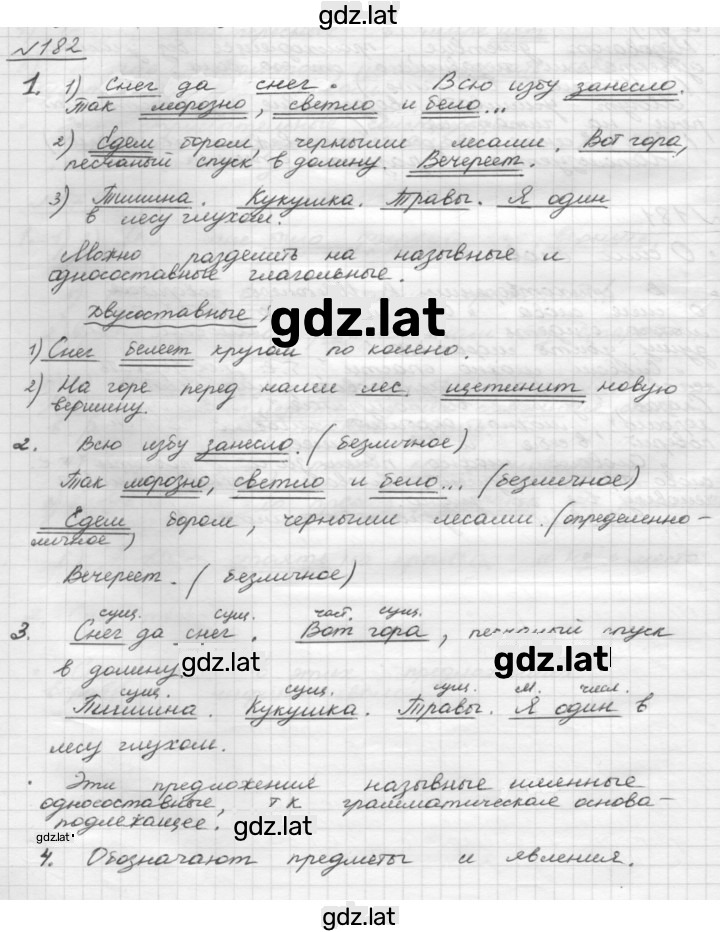 gdz.lat
№182
1. 1) Снег да снег. Всю избу занесло.
Так морозно, светло и бело...
2) Едем бором, черными лесами. Вот гора,
песчаный спуск в долину. Вечереет.
3) Тишина. Кукушка. Травы. Я один
в лесу глухом.
Можно разделить на назывные и
односоставные глагольные.
Двусоставные:
gdz.lat
1) Снег белеет кругом по колено.
2) На горе перед нами лес щетинит новую
вершину.
2. Всю избу занесло. (безличное)
Так морозно, светло и бело... (безличное)
Едем бором, черными лесами. (определенно-
личное)
Вечереет. (безличное)
сущ. сущ. част. сущ.
3. Снег да снег. Вот гора, спуск
в долину.
gdz.lat gdz.lat
сущ. сущ. сущ. м. числ.
Тишина. Кукушка. Травы. Я один в
лесу глухом.
Эти предложения назывные именные
односоставные, т к грамматическая основа-
подлежащее.
gdz.lat
gdz.lat
4. Обозначают предметы и явления.
gdz.lat